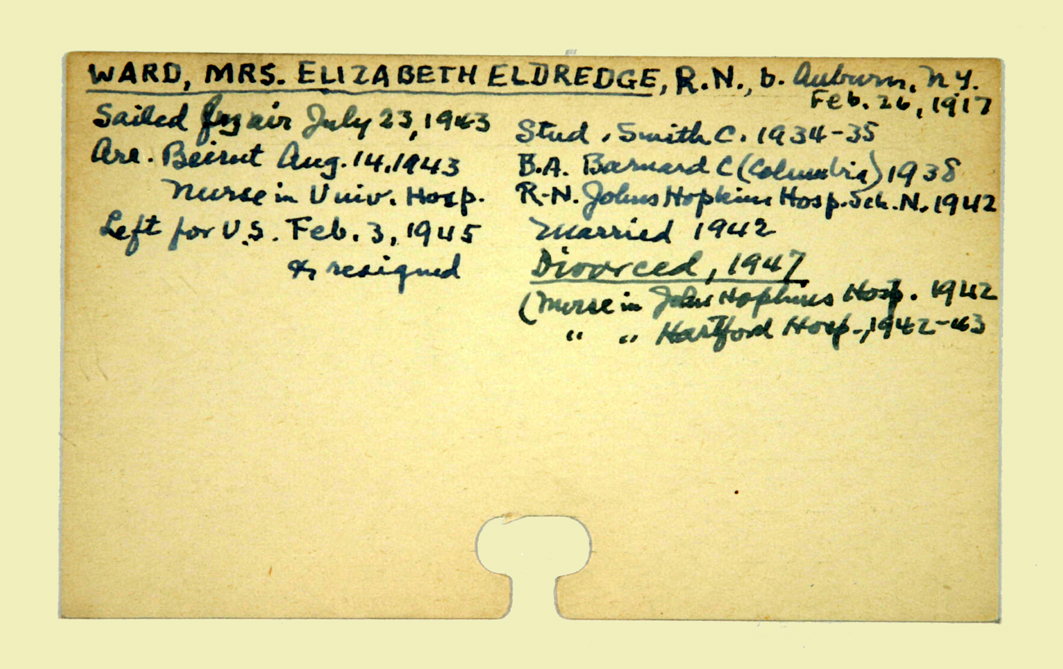 WARD, MRS. ELIZABETH ELDREDGE, R.N., b. Auburn, N.Y.
Feb. 26, 1917
Sailed by air July 23, 1943
Arr. Beirut Aug. 14, 1943
Nurse in Univ. Hosp.
Left for U.S. Feb. 3, 1945
& resigned
Stud. Smith C. 1934-35
B.A. Barnard C (Columbia) 1938
R.N. Johns Hopkins Hosp. Sch. N. 1942
Married 1942
Divorced, 1947
(Nurse in Johns Hopkins Hosp. 1942
" " Hartford Hosp., 1942-43